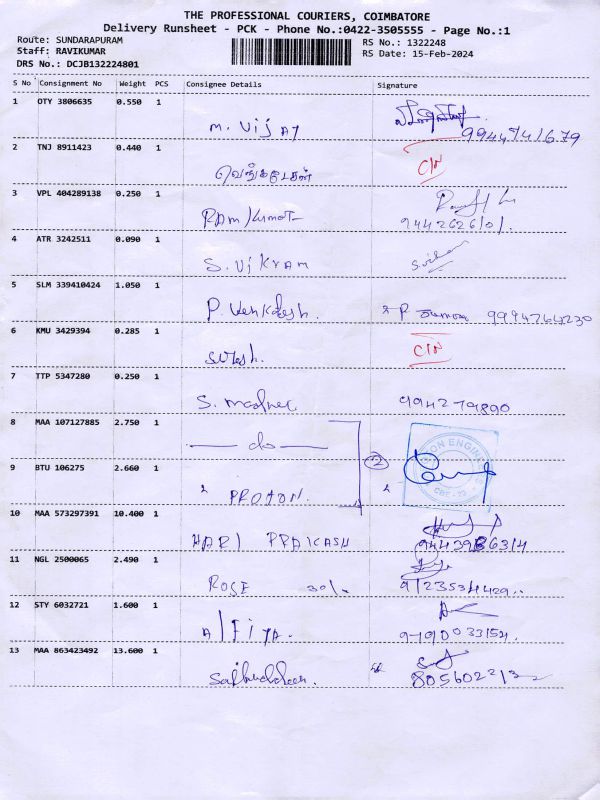 THE PROFESSIONAL COURIERS, COIMBATORE
Delivery Runsheet - PCK - Phone No.:0422-3505555 - Page No.:1
Route: SUNDARAPURAM
RS No.: 1322248
Staff: RAVIKUMAR
RS Date: 15-Feb-2024
DRS No.: DCJB132224801
S No Consignment No Weight PCS Consignee Details Signature
1 OTY 3806635 0.550 1
M. Vijay
2 TNJ 8911423 0.440 1
வெங்கடேசன்
3 VPL 404289138 0.250 1
Ram Kumar
9442626101.
4 ATR 3242511 0.090 1
S. Vikram
5 SLM 339410424 1.050 1
P. Venkatesh. 9994764230
6 KMU 3429394 0.285 1
7 TTP 5347280 0.250 1
S. 9942279890
8 MAA 107127885 2.750 1
— do —
9 BTU 106275 2.660 1
2
PROTON.
10 MAA 573297391 10.400 1
HARI PRAKASH
11 NGL 2500065 2.490 1
ROSE
12 STY 6032721 1.600 1
Alfiya.
13 MAA 863423492 13.600 1